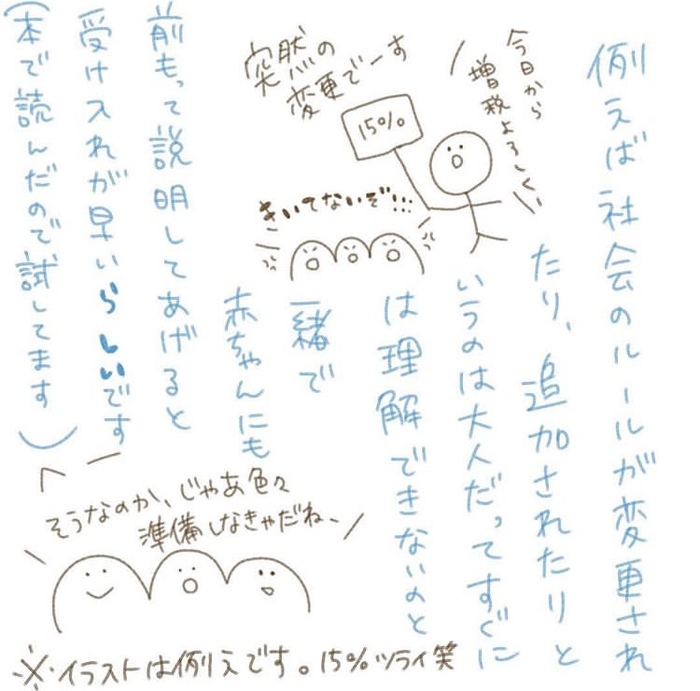 例えば社会のルールが変更され
たり、追加されたりと
いうのは大人だってすぐに
は理解できないのと
今日から
増税よろしくい
突然の
変更でーす
15%
きいてないぞ!!!
一緒で
赤ちゃんにも
前もって説明してあげると
受け入れが早いらしいです
(本で読んだので試してます)
そうなのか、じゃあ色々
準備しなきゃだねー
※イラストは例えです。15%ツライ笑